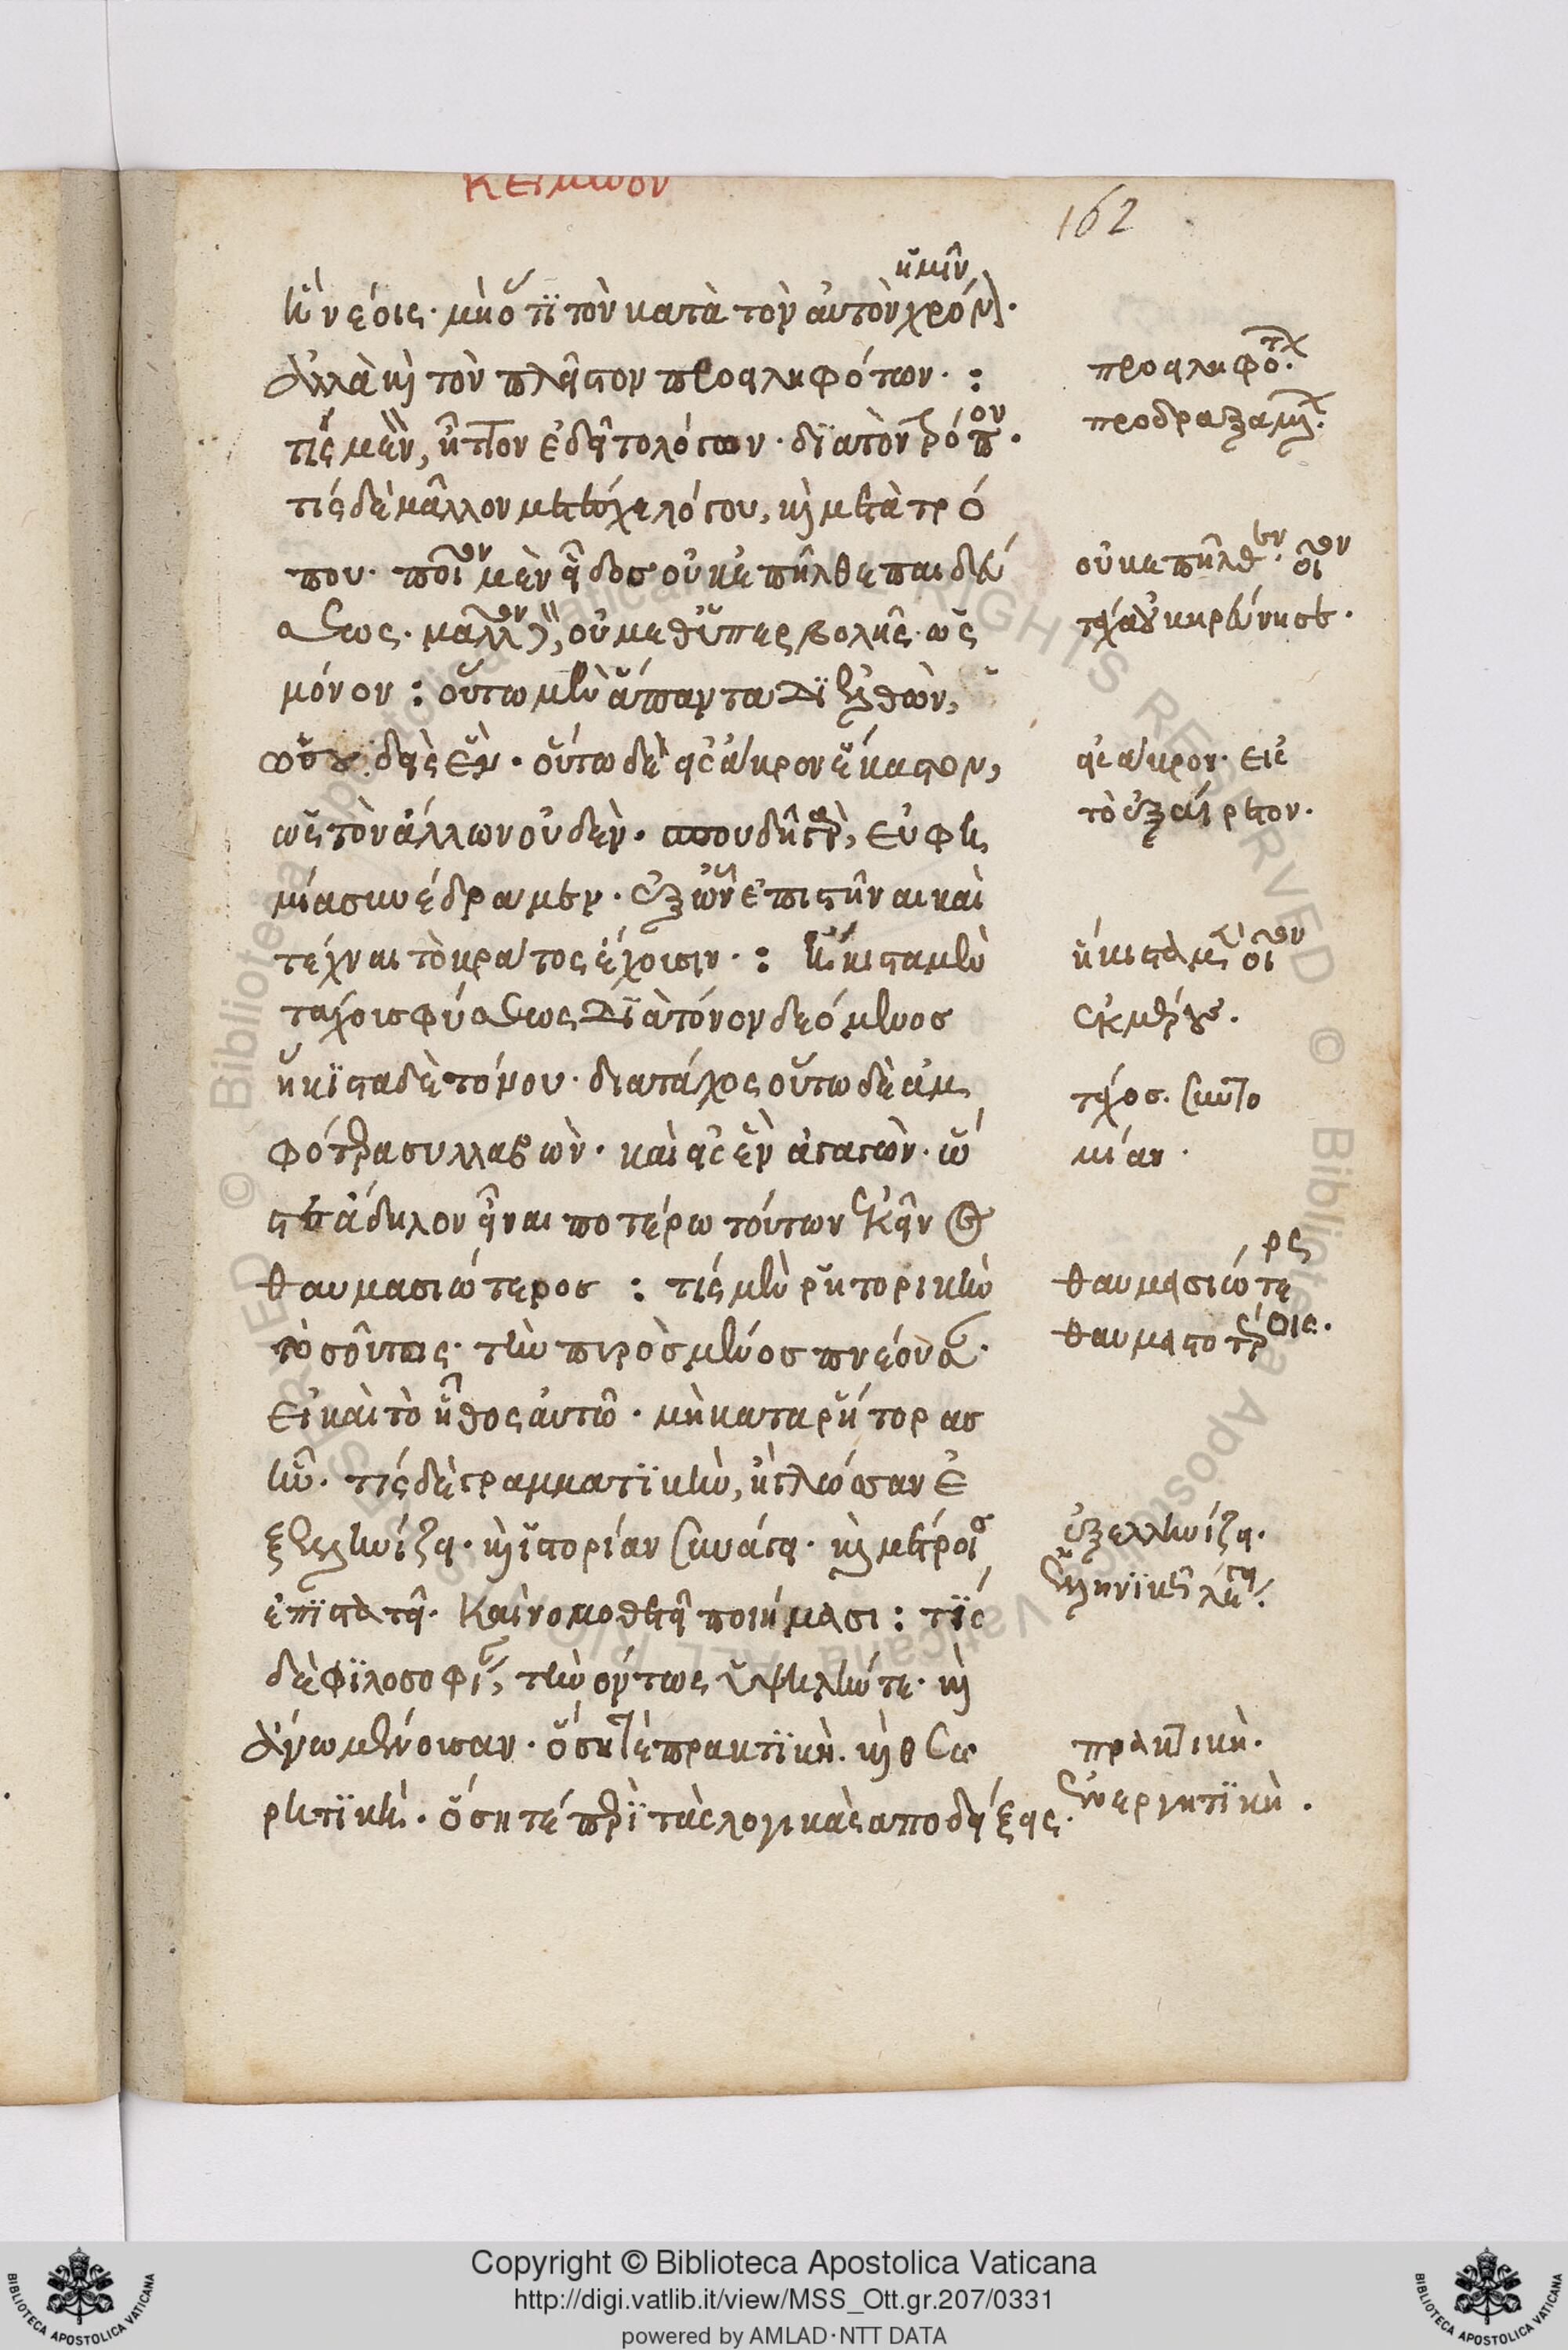 κείμενον
162
ἡμῖν
ἣν νέοις· μὴ ὅτι τὸν κατὰ τὸν αὐτὸν χρόνον·
ἀλλὰ καὶ τὸν πλεῖστον προειληφότων· :
τίς μὲν, ἧττον ἐδεῖτο λόγων· διὰ τὸν τρόπον·
τίς δὲ μᾶλλον μετεῖχε λόγου, καὶ μετὰ τρό
που· ποῖον μὲν εἶδος οὐκ ἐπῆλθε παιδεύ
σεως· μᾶλλον δὲ, οὐ μεθ' ὑπερβολῆς· ὡς
μόνον : οὕτω μὲν ἅπαντα διελθὼν,
ὡς οὐδεὶς ἕν· οὕτω δὲ εἰς ἄκρον ἕκαστον,
ὡς τῶν ἄλλων οὐδέν· σπουδῇ γὰρ, εὐφυ
ΐα συνέδραμεν· ἐξ ὧν ἐπιστῆμαι καὶ
τέχναι τὸ κράτος ἔχουσιν· : ἥκιστα μὲν
τάχους φύσεως διὰ τόνον δεόμενος
ἥκιστα δὲ τόνου· διὰ τάχος οὕτω δὲ ἀμ
φότερα συλλαβὼν· καὶ εἰς ἓν ἀγαγών· ὥ
στε ἄδηλον εἶναι ποτέρω τούτων ἐκεῖνος
θαυμασιώτερος : τίς μὲν ῥητορικὴν
τοσοῦτος· τὴν πυρὸς μένος πνέουσαν·
εἰ καὶ τὸ ἦθος αὐτῷ· μὴ κατὰ ῥήτορας
ἦν· τίς δὲ γραμματικὴν, ἢ γλῶσσαν ἐ
ξελληνίζει· καὶ ἱστορίαν συνάγει· καὶ μέτροις
ἐπιστατεῖ· καὶ νομοθετεῖ ποιήμασι : τίς
δὲ φιλοσοφίαν, τὴν ὄντως ὑψηλήν τε· καὶ
ἄνω μένουσαν· ὅση τὲ πρακτικὴ· καὶ θεω
ρητικὴ· ὅση τέ περὶ τὰς λογικὰς ἀποδείξεις·
προειληφότων·
προδραξαμένων·
οὐκ ἐπῆλθεν· οἷον
οὐκ
εἰς ἄκρον· εἰς
τὸ ἐξαίρετον·
ἥκιστα μὲν· οἷον
τάχος· συντο
μίαν·
θαυμασιώτερος
θαυμαστότερος·
ἐξελληνίζει·
ἑλληνικῶς λέγει·
πρακτικὴ·
ἐνεργητικὴ·
Copyright © Biblioteca Apostolica Vaticana
http://digi.vatlib.it/view/MSS_Ott.gr.207/0331
powered by AMLAD·NTT DATA